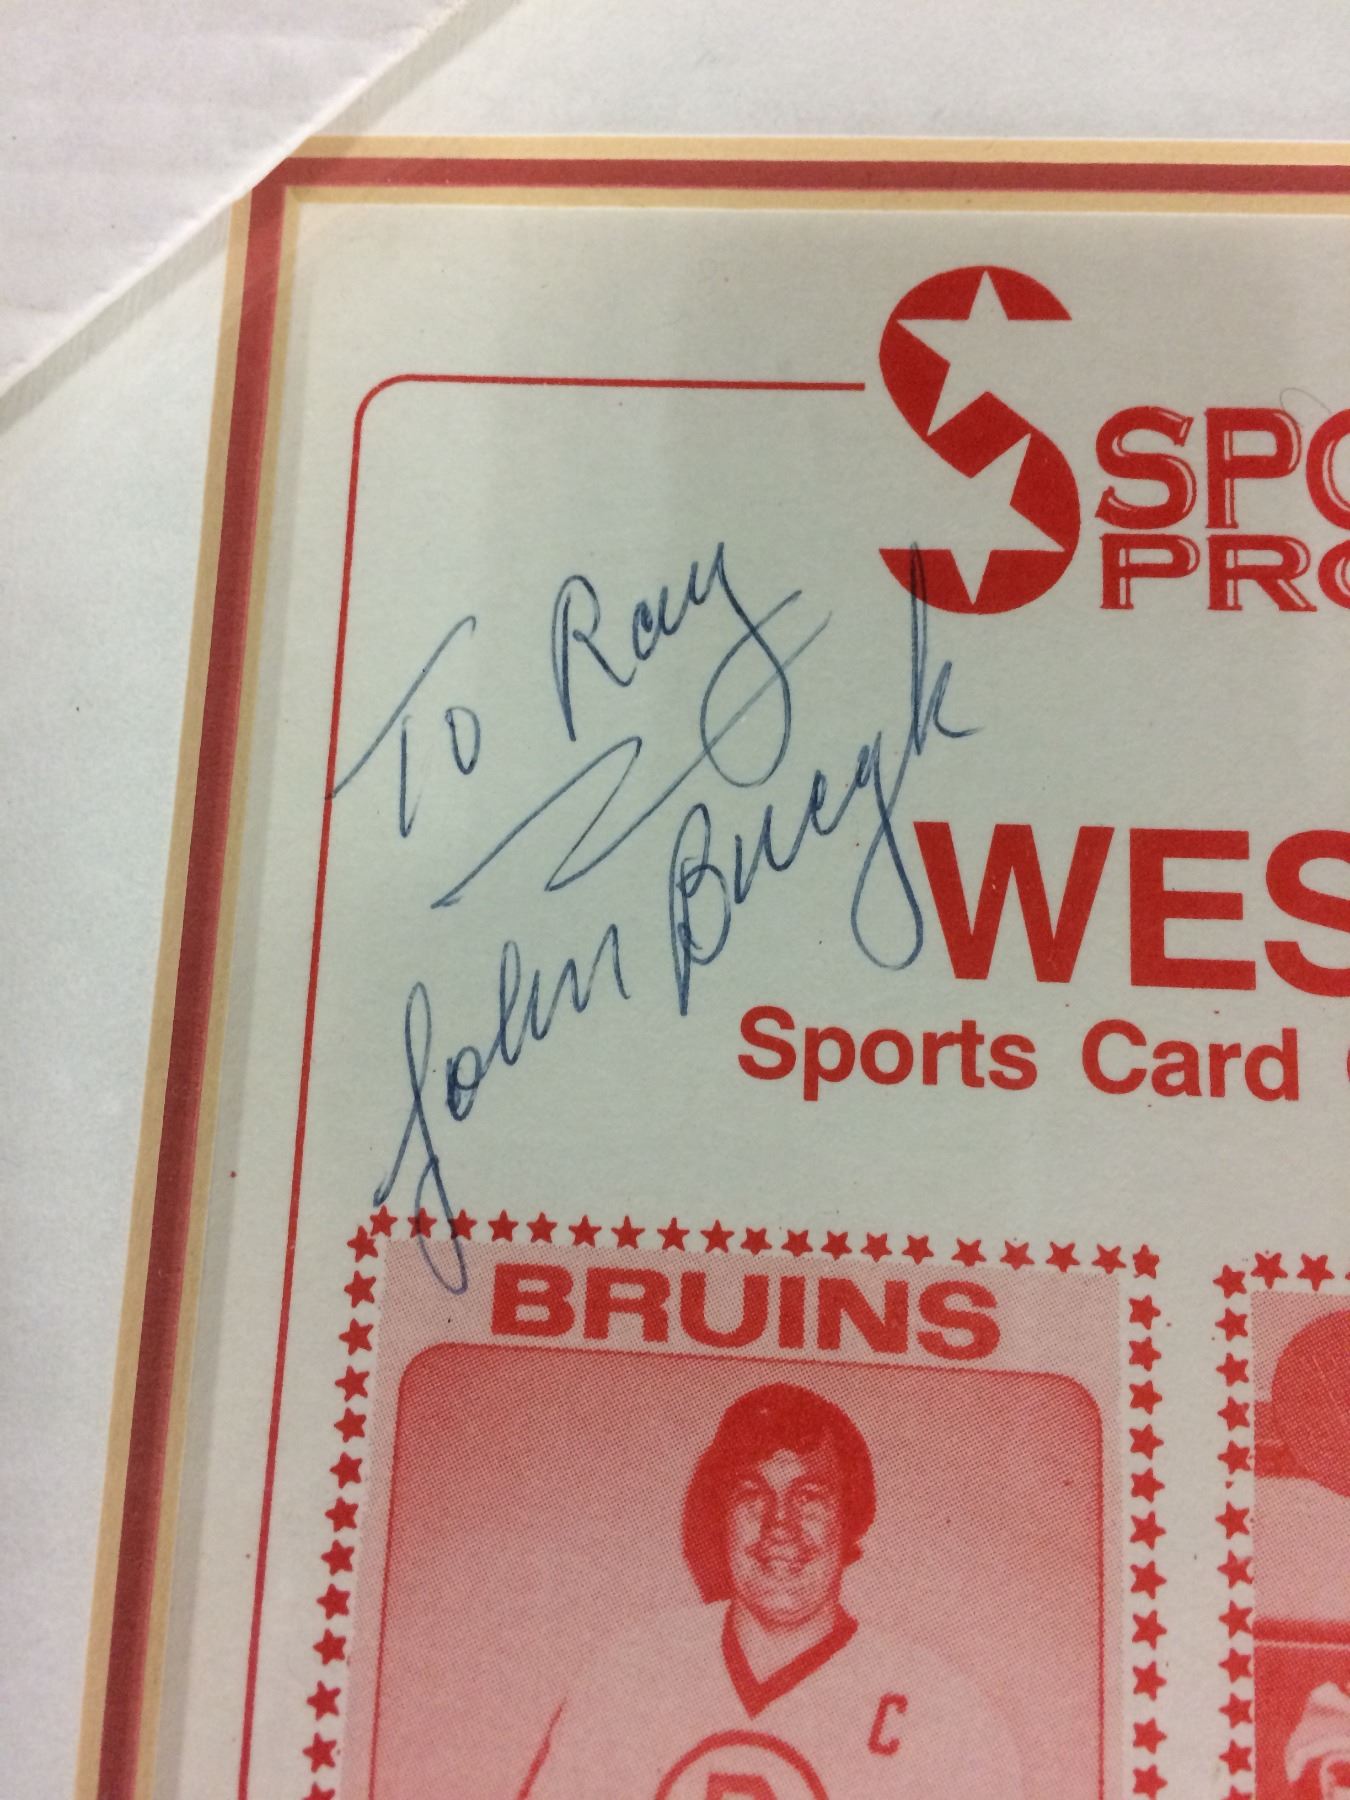 SPO
PRO
To Ray
John Bucyk
WES
Sports Card
BRUINS
C
B